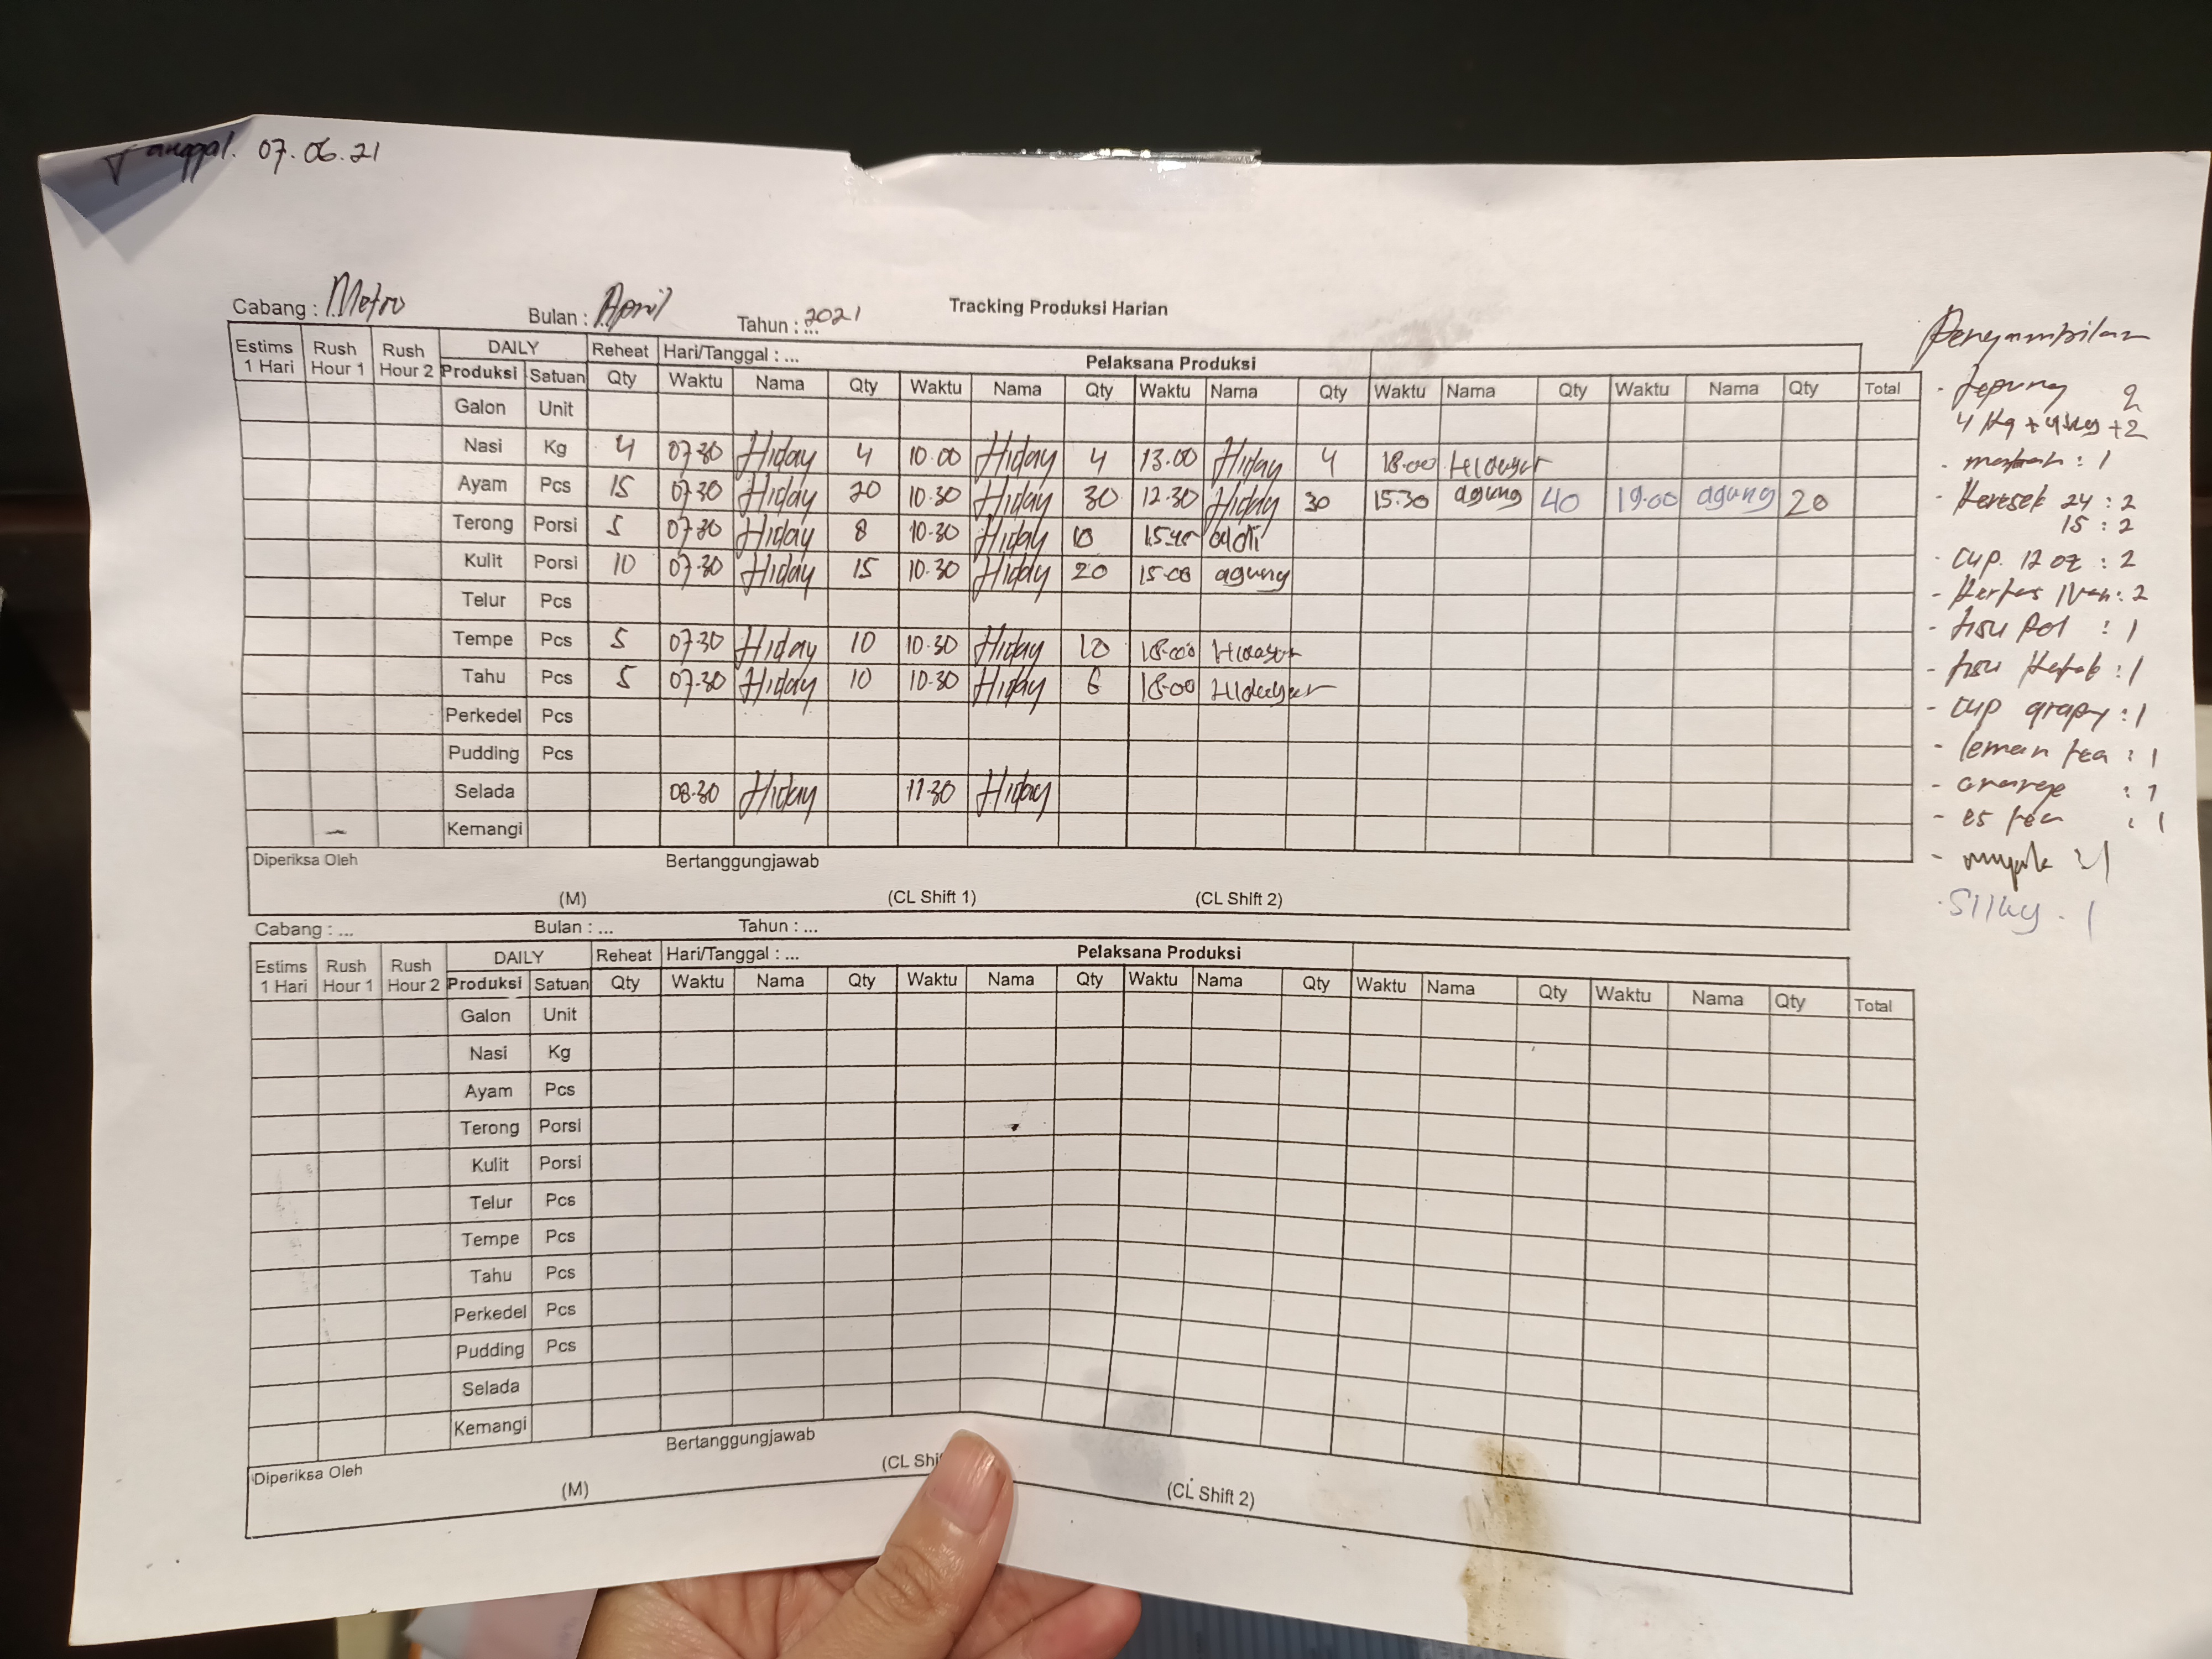 Tanggal. 07.06.21
Cabang : Metro Bulan : April Tahun : 2021 Tracking Produksi Harian
Estims 1 Hari Rush Hour 1 Rush Hour 2 DAILY Reheat Hari/Tanggal : ... Pelaksana Produksi
Produksi Satuan Qty Waktu Nama Qty Waktu Nama Qty Waktu Nama Qty Waktu Nama Qty Waktu Nama Qty Total
Galon Unit
Nasi Kg 4 07.30 Hiday 4 10.00 Hiday 4 13.00 Hiday 4 18.00
Ayam Pcs 15 07.30 Hiday 20 10.30 Hiday 30 12.30 Hiday 30 15.30 agung 40 19.00 agung 20
Terong Porsi 5 07.30 Hiday 8 10.30 Hiday 10
Kulit Porsi 10 07.30 Hiday 15 10.30 Hiday 20 15.00 agung
Telur Pcs
Tempe Pcs 5 07.30 Hiday 10 10.30 Hiday 10 18.00
Tahu Pcs 5 07.30 Hiday 10 10.30 Hiday 6 18.00
Perkedel Pcs
Pudding Pcs
Selada 08.30 Hiday 11.30 Hiday
Kemangi
Diperiksa Oleh Bertanggungjawab
(M) (CL Shift 1) (CL Shift 2)
Pengambilan
- Tepung 2
4 kg + 4 kg + 2
- : 1
- Keresek 24 : 2
15 : 2
- cup. 12 oz : 2
- Kertas : 2
- tisu : 1
- tisu : 1
- cup grapy : 1
- leman tea : 1
- orange : 1
- es tea : 1
- : 1
Cabang : ... Bulan : ... Tahun : ...
Estims 1 Hari Rush Hour 1 Rush Hour 2 DAILY Reheat Hari/Tanggal : ... Pelaksana Produksi
Produksi Satuan Qty Waktu Nama Qty Waktu Nama Qty Waktu Nama Qty Waktu Nama Qty Waktu Nama Qty Total
Galon Unit
Nasi Kg
Ayam Pcs
Terong Porsi
Kulit Porsi
Telur Pcs
Tempe Pcs
Tahu Pcs
Perkedel Pcs
Pudding Pcs
Selada
Kemangi
Diperiksa Oleh Bertanggungjawab
(M) (CL Shi (CL Shift 2)